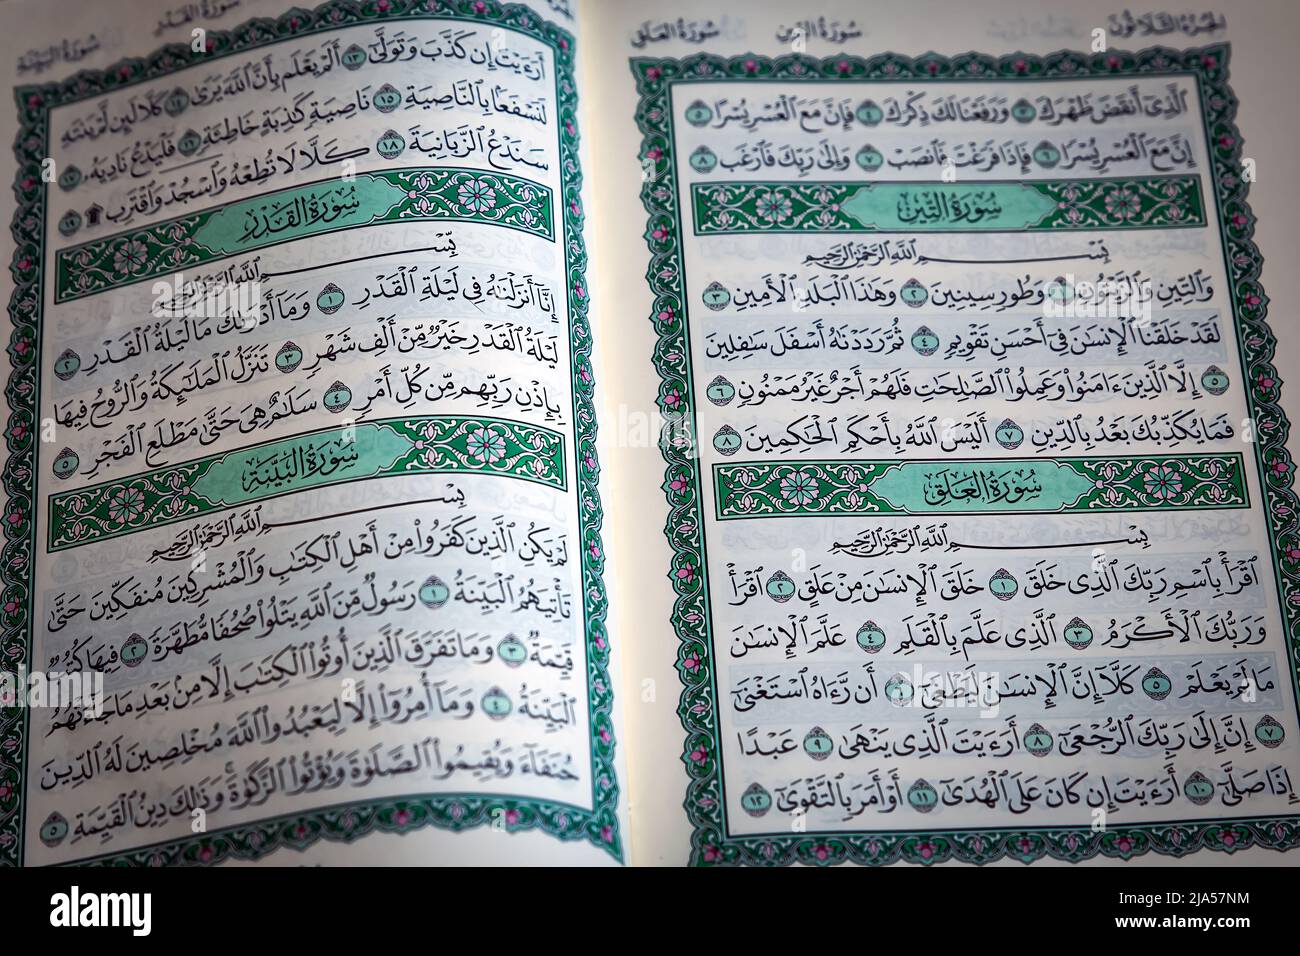 الجزء الثلاثون
سورة التين
سورة العلق
ٱلَّذِىٓ أَنقَضَ ظَهْرَكَ ٣ وَرَفَعْنَا لَكَ ذِكْرَكَ ٤ فَإِنَّ مَعَ ٱلْعُسْرِ يُسْرًا ٥
إِنَّ مَعَ ٱلْعُسْرِ يُسْرًا ٦ فَإِذَا فَرَغْتَ فَٱنصَبْ ٧ وَإِلَىٰ رَبِّكَ فَٱرْغَب ٨
سُورَةُ التِّينِ
بِسْمِ ٱللَّهِ ٱلرَّحْمَٰنِ ٱلرَّحِيمِ
وَٱلتِّينِ وَٱلزَّيْتُونِ ١ وَطُورِ سِينِينَ ٢ وَهَٰذَا ٱلْبَلَدِ ٱلْأَمِينِ ٣
لَقَدْ خَلَقْنَا ٱلْإِنسَٰنَ فِىٓ أَحْسَنِ تَقْوِيمٍ ٤ ثُمَّ رَدَدْنَٰهُ أَسْفَلَ سَٰفِلِينَ
٥ إِلَّا ٱلَّذِينَ ءَامَنُوا۟ وَعَمِلُوا۟ ٱلصَّٰلِحَٰتِ فَلَهُمْ أَجْرٌ غَيْرُ مَمْنُونٍ ٦
فَمَا يُكَذِّبُكَ بَعْدُ بِٱلدِّينِ ٧ أَلَيْسَ ٱللَّهُ بِأَحْكَمِ ٱلْحَٰكِمِينَ ٨
سُورَةُ العَلَقِ
بِسْمِ ٱللَّهِ ٱلرَّحْمَٰنِ ٱلرَّحِيمِ
ٱقْرَأْ بِٱسْمِ رَبِّكَ ٱلَّذِى خَلَقَ ١ خَلَقَ ٱلْإِنسَٰنَ مِنْ عَلَقٍ ٢ ٱقْرَأْ
وَرَبُّكَ ٱلْأَكْرَمُ ٣ ٱلَّذِى عَلَّمَ بِٱلْقَلَمِ ٤ عَلَّمَ ٱلْإِنسَٰنَ
مَا لَمْ يَعْلَمْ ٥ كَلَّآ إِنَّ ٱلْإِنسَٰنَ لَيَطْغَىٰٓ ٦ أَن رَّءَاهُ ٱسْتَغْنَىٰٓ
٧ إِنَّ إِلَىٰ رَبِّكَ ٱلرُّجْعَىٰٓ ٨ أَرَءَيْتَ ٱلَّذِى يَنْهَىٰ ٩ عَبْدًا
إِذَا صَلَّىٰٓ ١٠ أَرَءَيْتَ إِن كَانَ عَلَى ٱلْهُدَىٰٓ ١١ أَوْ أَمَرَ بِٱلتَّقْوَىٰٓ ١٢
سورة القدر
سورة البينة
أَرَءَيْتَ إِن كَذَّبَ وَتَوَلَّىٰٓ ١٣ أَلَمْ يَعْلَم بِأَنَّ ٱللَّهَ يَرَىٰ ١٤ كَلَّا لَئِن لَّمْ يَنتَهِ
لَنَسْفَعًۢا بِٱلنَّاصِيَةِ ١٥ نَاصِيَةٍ كَٰذِبَةٍ خَاطِئَةٍ ١٦ فَلْيَدْعُ نَادِيَهُۥ ١٧
سَنَدْعُ ٱلزَّبَانِيَةَ ١٨ كَلَّا لَا تُطِعْهُ وَٱسْجُدْ وَٱقْتَرِب ۩ ١٩
سُورَةُ القَدْرِ
بِسْمِ ٱللَّهِ ٱلرَّحْمَٰنِ ٱلرَّحِيمِ
إِنَّآ أَنزَلْنَٰهُ فِى لَيْلَةِ ٱلْقَدْرِ ١ وَمَآ أَدْرَىٰكَ مَا لَيْلَةُ ٱلْقَدْرِ ٢
لَيْلَةُ ٱلْقَدْرِ خَيْرٌ مِّنْ أَلْفِ شَهْرٍ ٣ تَنَزَّلُ ٱلْمَلَٰٓئِكَةُ وَٱلرُّوحُ فِيهَا
بِإِذْنِ رَبِّهِم مِّن كُلِّ أَمْرٍ ٤ سَلَٰمٌ هِىَ حَتَّىٰ مَطْلَعِ ٱلْفَجْرِ ٥
سُورَةُ البَيِّنَةِ
بِسْمِ ٱللَّهِ ٱلرَّحْمَٰنِ ٱلرَّحِيمِ
لَمْ يَكُنِ ٱلَّذِينَ كَفَرُوا۟ مِنْ أَهْلِ ٱلْكِتَٰبِ وَٱلْمُشْرِكِينَ مُنفَكِّينَ حَتَّىٰ
تَأْتِيَهُمُ ٱلْبَيِّنَةُ ١ رَسُولٌ مِّنَ ٱللَّهِ يَتْلُوا۟ صُحُفًا مُّطَهَّرَةً ٢ فِيهَا كُتُبٌ
قَيِّمَةٌ ٣ وَمَا تَفَرَّقَ ٱلَّذِينَ أُوتُوا۟ ٱلْكِتَٰبَ إِلَّا مِنۢ بَعْدِ مَا جَآءَتْهُمُ
ٱلْبَيِّنَةُ ٤ وَمَآ أُمِرُوٓا۟ إِلَّا لِيَعْبُدُوا۟ ٱللَّهَ مُخْلِصِينَ لَهُ ٱلدِّينَ
حُنَفَآءَ وَيُقِيمُوا۟ ٱلصَّلَوٰةَ وَيُؤْتُوا۟ ٱلزَّكَوٰةَ ۚ وَذَٰلِكَ دِينُ ٱلْقَيِّمَةِ ٥
alamy
Image ID: 2JA57NM
www.alamy.com